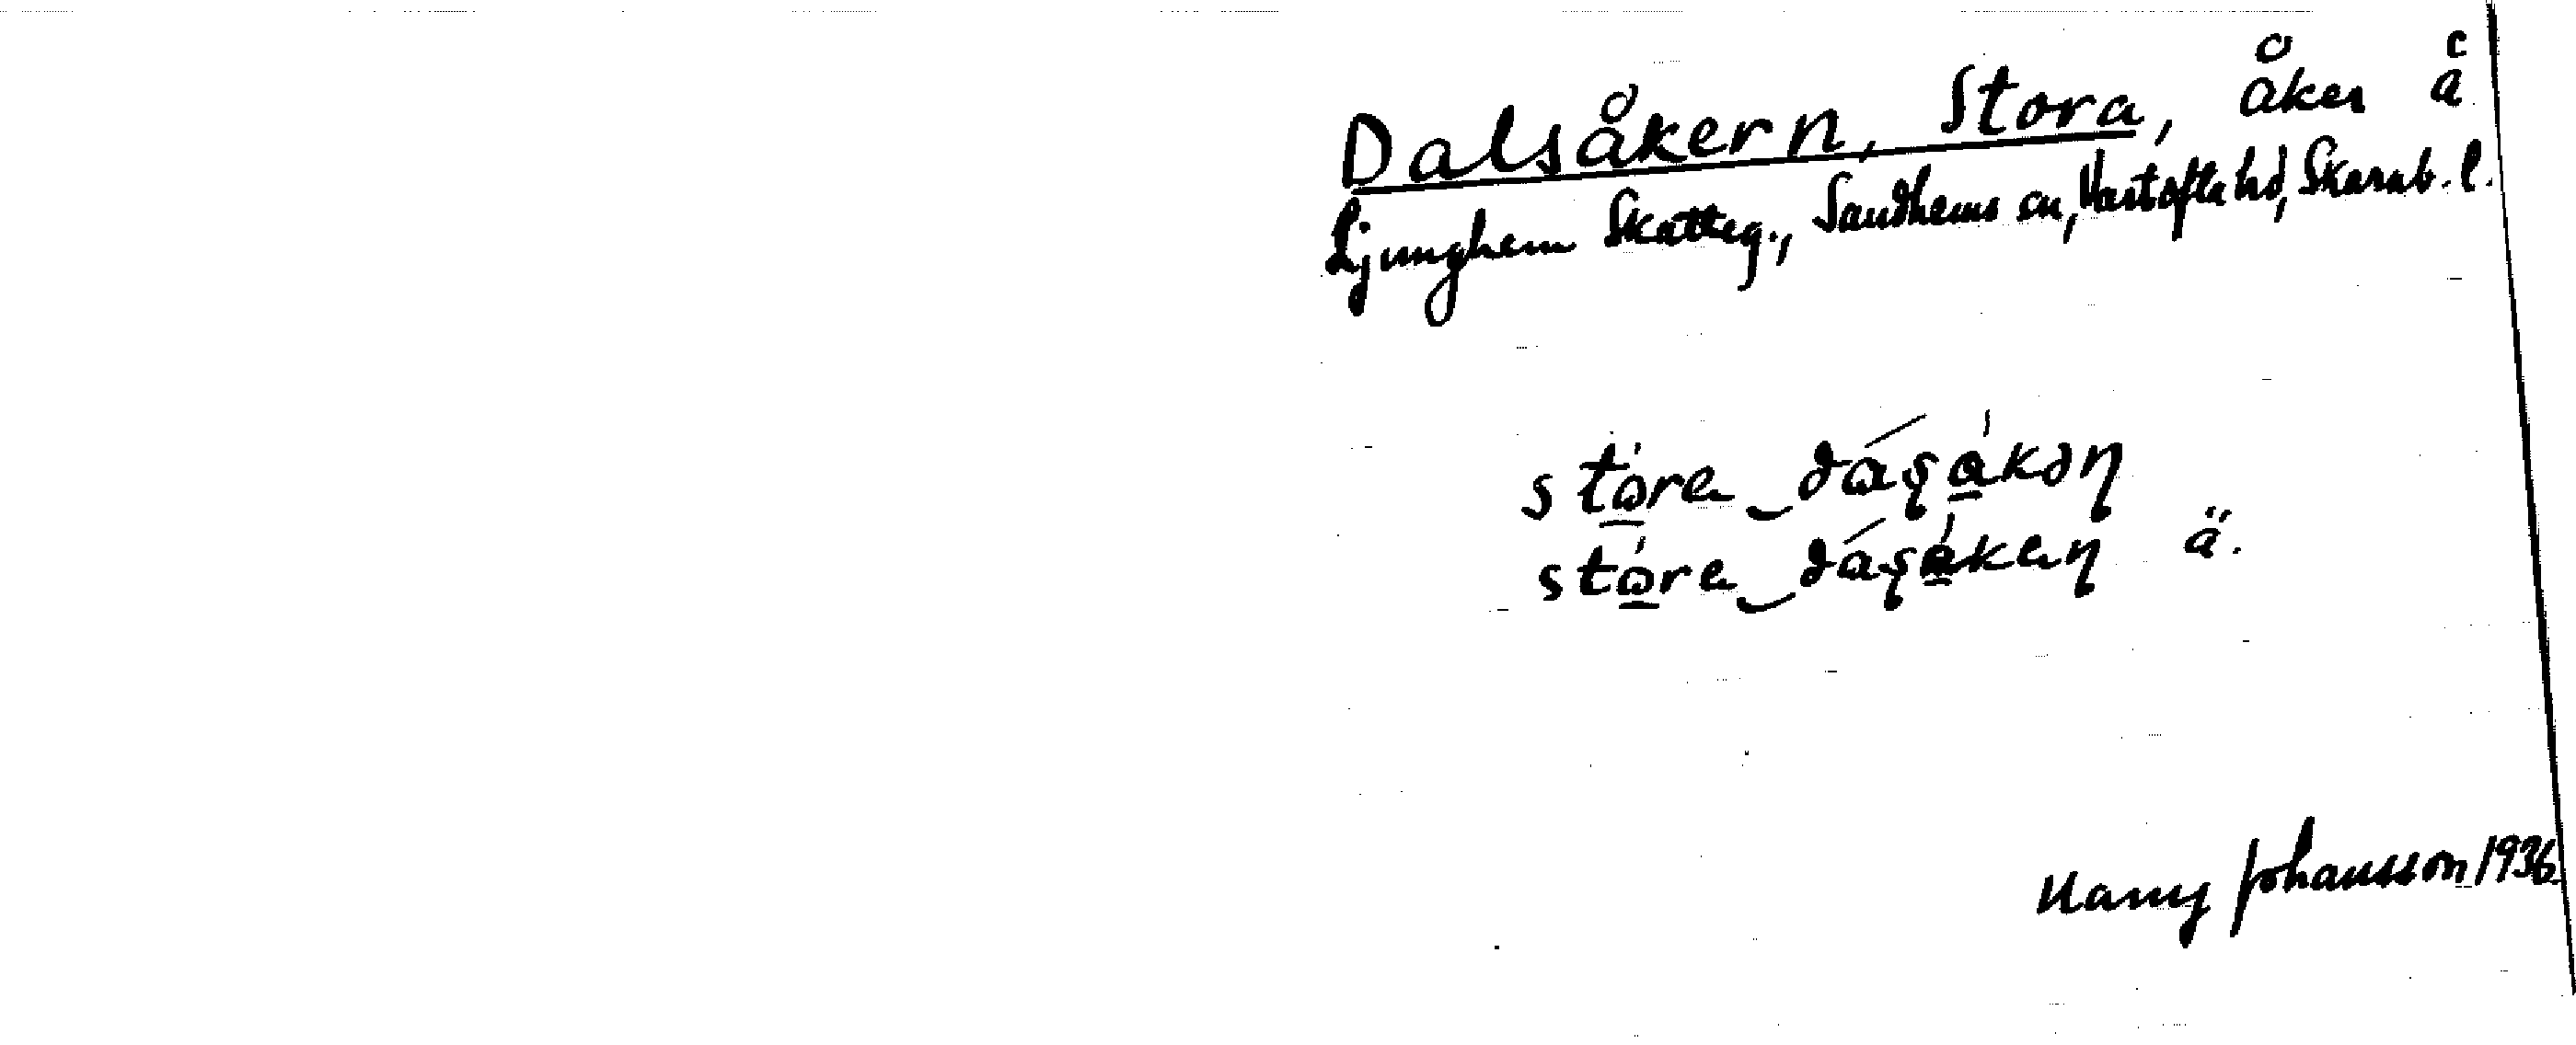 Dalsåkern, Stora, åker å
Ljunghem Skatteg., Sandhems sn, Vartofta hd, Skarab. l.
stòra dáʂåkəɳ
stòra dáʂåkaɳ ä.
Harry Johansson 1936